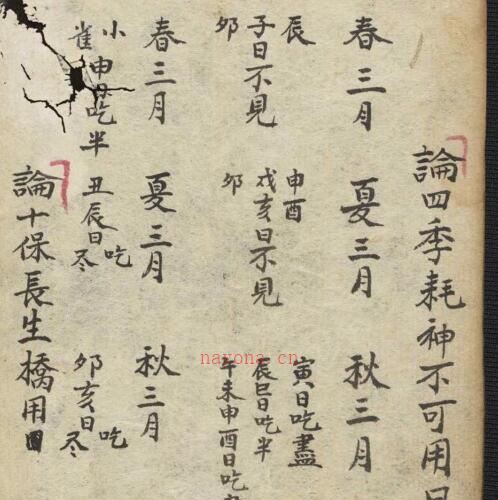 論四季耗神不可用日
春三月
辰
子日不見
卯
夏三月
申酉
戌亥日不見
卯
秋三月
寅日吃盡
辰巳日吃半
午未申酉日吃
春三月
小
雀申日吃半
夏三月
丑辰日吃尽
秋三月
卯亥日吃尽
論十保長生橋用
nayona.cn